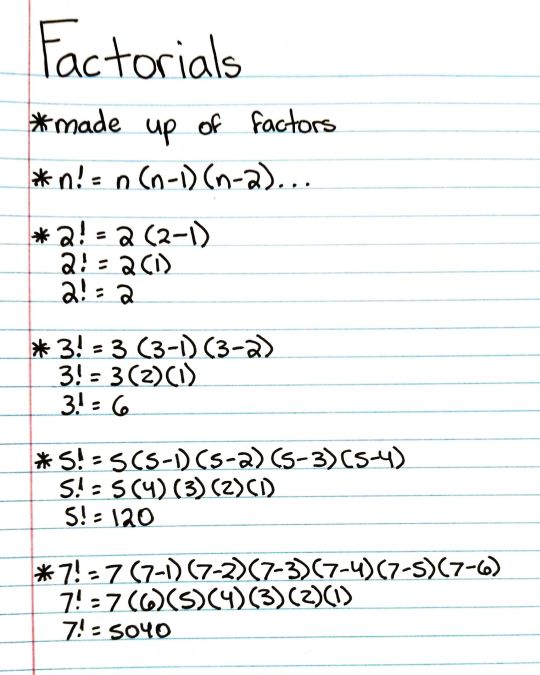 Factorials
*made up of factors
*n! = n (n-1) (n-2)...
*2! = 2 (2-1)
2! = 2(1)
2! = 2
*3! = 3 (3-1) (3-2)
3! = 3(2)(1)
3! = 6
*5! = 5(5-1) (5-2) (5-3)(5-4)
5! = 5(4) (3) (2)(1)
5! = 120
*7! = 7 (7-1) (7-2)(7-3)(7-4)(7-5)(7-6)
7! = 7 (6)(5)(4)(3)(2)(1)
7! = 5040